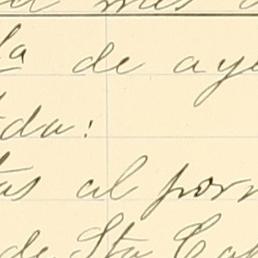 mes
la de aye
da:
as al porm
de Sta Ca